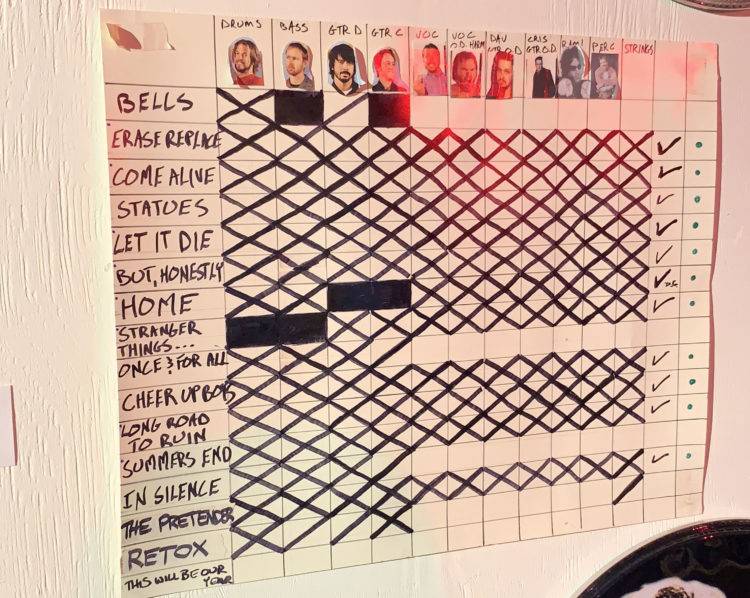 DRUMS BASS GTR D GTR C VOC VOC DAV CRIS RAMI PERC STRINGS
O.D. HARM GTR O.D GTR O.D.
BELLS
ERASE REPLACE
COME ALIVE
STATUES
LET IT DIE
BUT, HONESTLY
HOME
STRANGER
THINGS...
ONCE & FOR ALL
CHEER UP BOYS
LONG ROAD
TO RUIN
SUMMERS END
IN SILENCE
THE PRETENDER
RETOX
THIS WILL BE OUR
YEAR